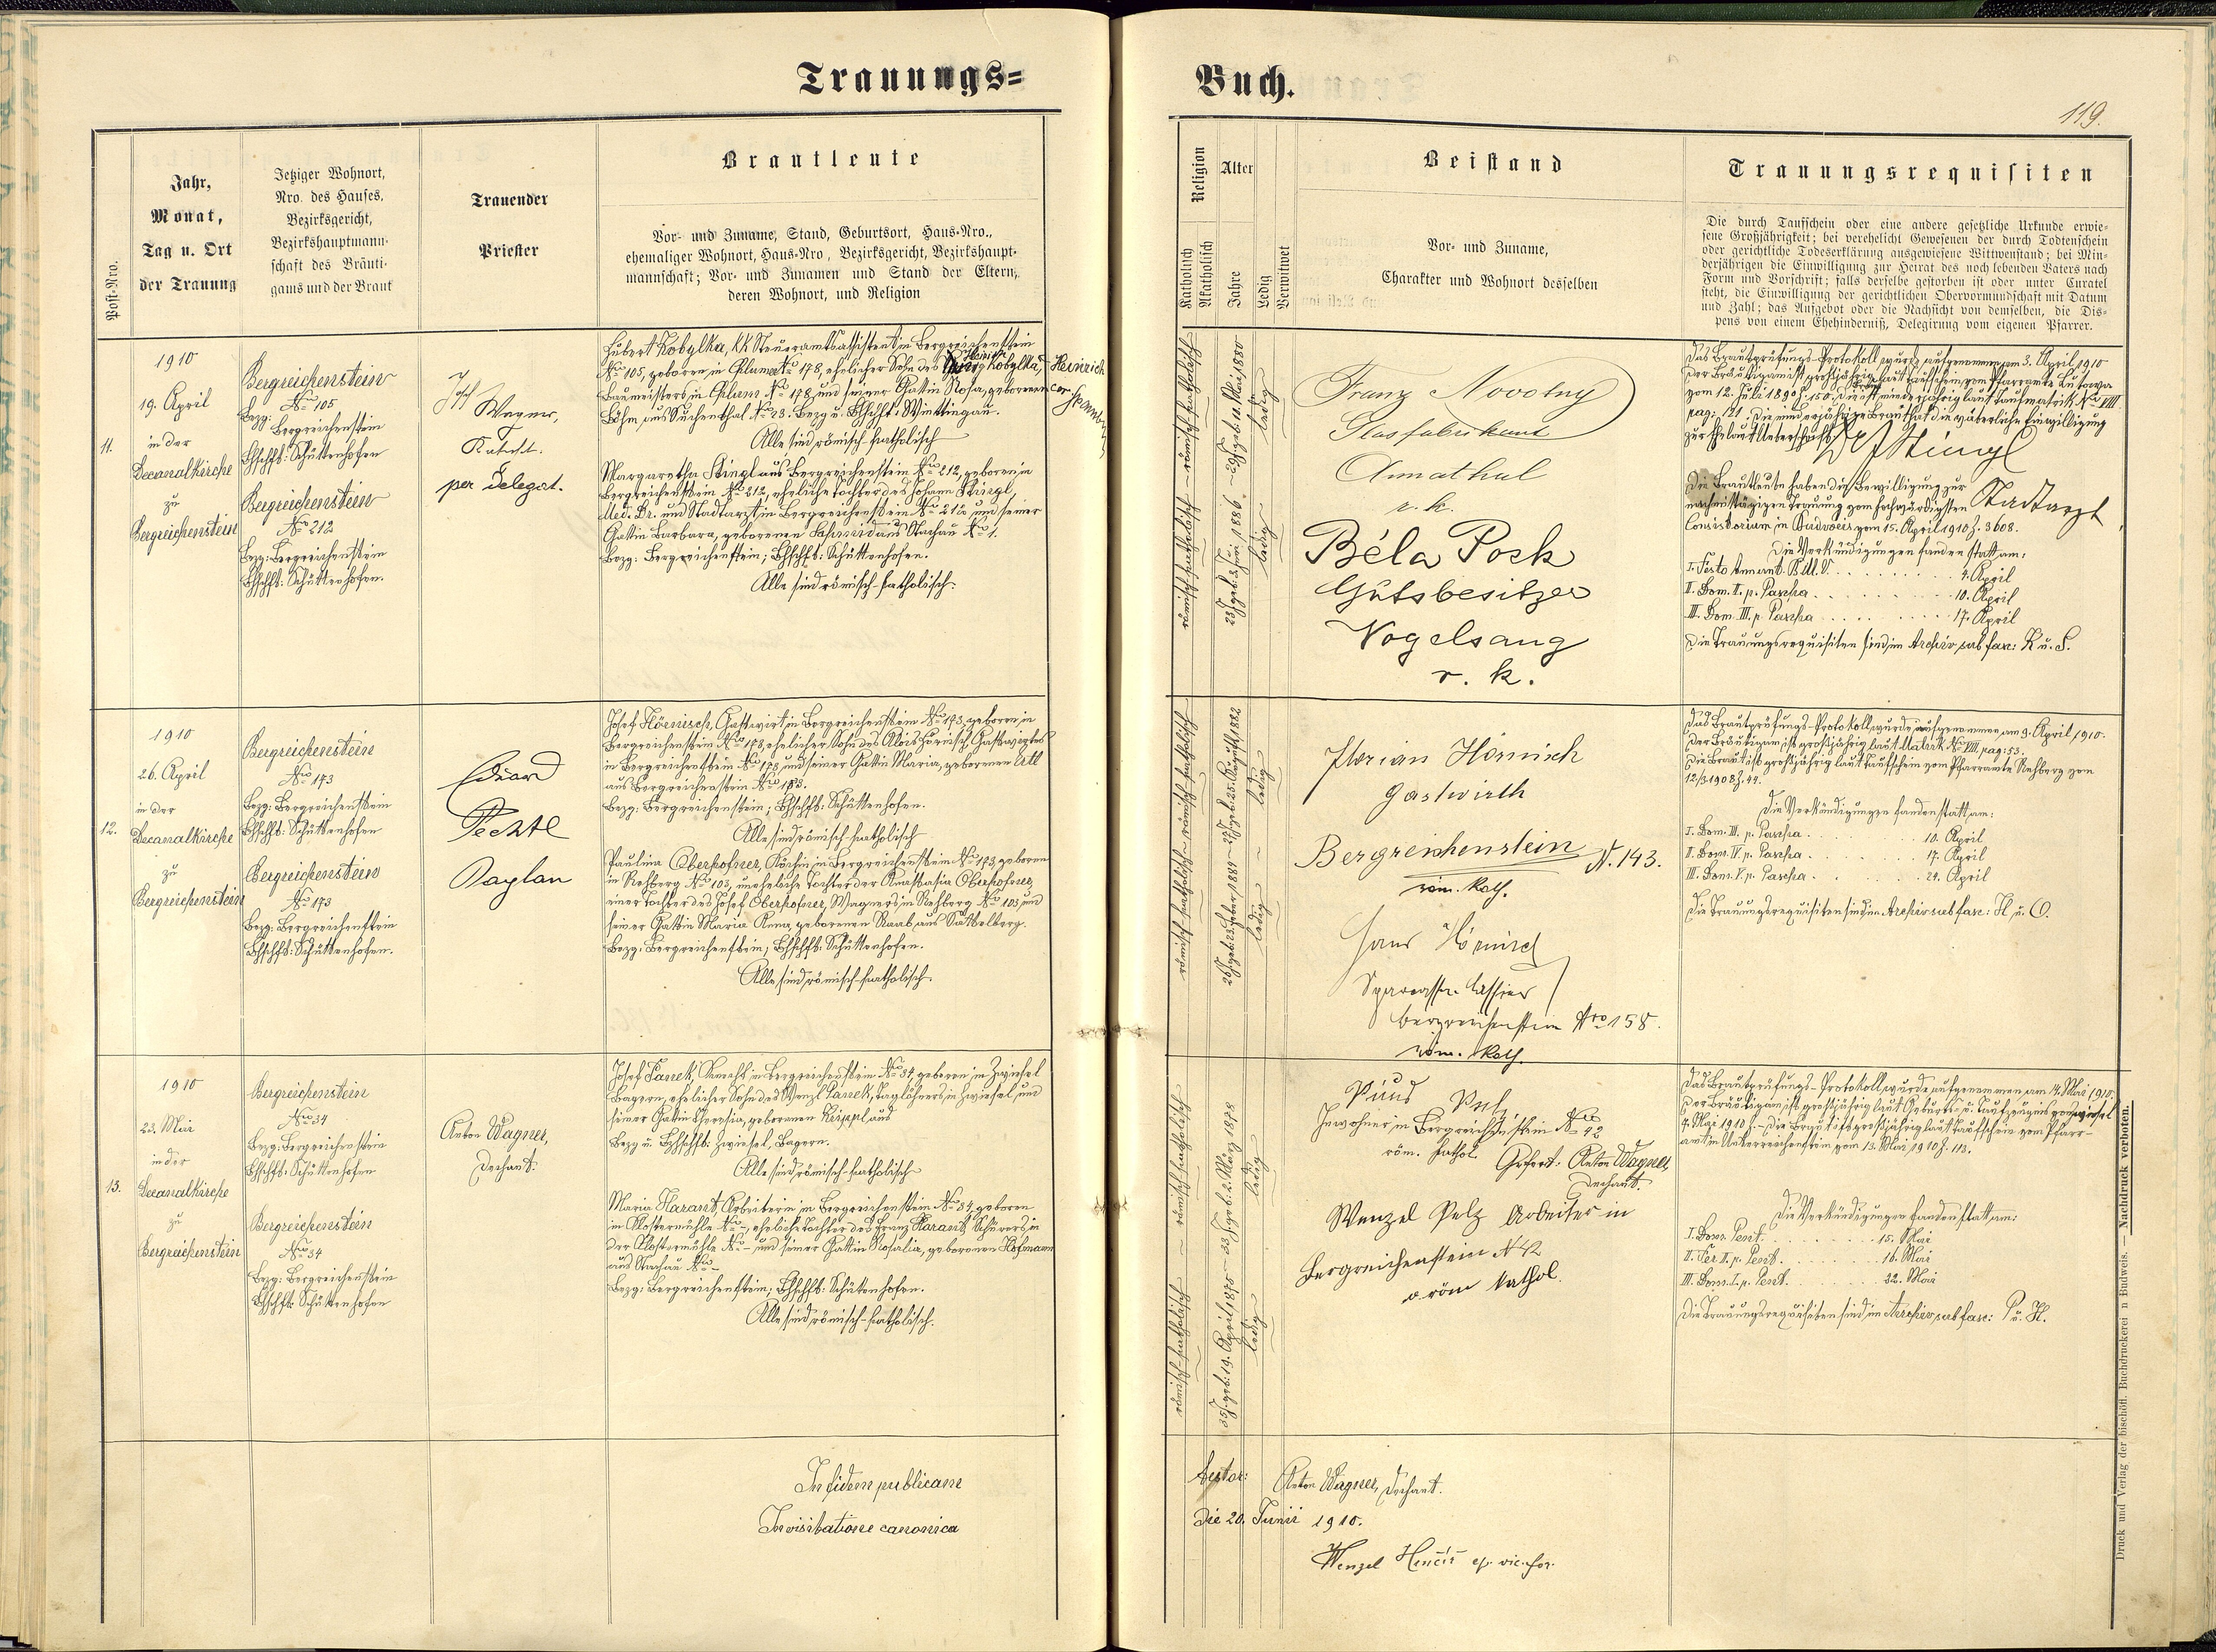 Trauungs=
Buch.
119.
Post-Nro.
Jahr,
Monat,
Tag u. Ort
der Trauung
Jetziger Wohnort,
Nro. des Hauses,
Bezirksgericht,
Bezirkshauptmann-
schaft des Bräuti-
gams und der Braut
Trauender
Priester
Brautleute
Vor- und Zuname, Stand, Geburtsort, Haus-Nro.,
ehemaliger Wohnort, Haus-Nro, Bezirksgericht, Bezirkshaupt-
mannschaft; Vor- und Zunamen und Stand der Eltern,
deren Wohnort, und Religion
Religion
Katholisch
Akatholisch
Alter
Jahre
Ledig
Verwitwet
Beistand
Vor- und Zuname,
Charakter und Wohnort desselben
Trauungsrequisiten
Die durch Taufschein oder eine andere gesetzliche Urkunde erwie-
sene Großjährigkeit; bei verehelicht Gewesenen der durch Todtenschein
oder gerichtliche Todeserklärung ausgewiesene Wittwenstand; bei Min-
derjährigen die Einwilligung zur Heirat des noch lebenden Vaters nach
Form und Vorschrift; falls derselbe gestorben ist oder unter Curatel
steht, die Einwilligung der gerichtlichen Obervormundschaft mit Datum
und Zahl; das Aufgebot oder die Nachsicht von demselben, die Dis-
pens von einem Ehehinderniß, Delegirung vom eigenen Pfarrer.
11.
1910
19. April
in der
Decanalkirche
zu
Bergreichenstein
Bergreichenstein
No 105
Bezg: Bergreichenstein
Bhschft: Schüttenhofen
Bergreichenstein
No 212
Bezg: Bergreichenstein
Bhschft: Schüttenhofen.
Wagner,
per delegat.
Hubert Kobylka, KK Steueramtsassistent in Bergreichenstein
No 105, geboren in Chlumec No 178, ehelicher Sohn des Heinrich Kobylka, Heinrich
Baumeisters in Chlum No 178 und seiner Gattin Rosa, geborenen
Böhm aus Suchenthal No 23. Bezg u. Bhschft: Wittingau.
Alle sind römisch-katholisch
Margaretha Stingl aus Bergreichenstein No 212, geboren in
Bergreichenstein No 212, eheliche Tochter des Johann Stingl,
Med. Dr. und Stadtarzt in Bergreichenstein No 212 und seiner
Gattin Barbara, geborenen Schmid aus Stachau No 1.
Bezg: Bergreichenstein; Bhschft: Schüttenhofen.
Alle sind römisch-katholisch.
römisch-katholisch – römisch-katholisch
23 J. geb. 3. Juni 1886 – 29 J. geb. 11. Mai 1880
ledig
ledig
Franz Novotny
Glasfabrikant
Annathal
r. k.
Béla Posk
Gutsbesitzer
Vogelsang
r. k.
Das Brautprüfungs-Protokoll wurde aufgenommen am 3. April 1910
Der Bräutigam ist großjährig laut Taufschein vom Pfarramte
vom 12. Juli 1890 Z. 150. Die Braut ist minderjährig laut Taufmatrik No VIII
pag: 121. Die minderjährige Braut hat die väterliche Einwilligung
zur Ehe laut Unterschrift: Dr J Stingl
Stadtarzt
Die Brautleute haben die Bewilligung zur
nachmittägigen Trauung vom hochwürdigsten
Consistorium in Budweis vom 15. April 1910 Z. 3608.
Die Verkündigungen fanden statt am:
I. Festo Annunt. B.M.V. . . . 4. April
II. Dom. II. p. Pascha . . . 10. April
III. Dom. III. p. Pascha . . . 17. April
Die Trauungsrequisiten sind im Archiv sub fasc: K u. S.
12.
1910
26. April
in der
Decanalkirche
zu
Bergreichenstein
Bergreichenstein
No 173
Bezg: Bergreichenstein
Bhschft: Schüttenhofen
Bergreichenstein
No 173
Bezg: Bergreichenstein
Bhschft: Schüttenhofen.
Eduard
Pechtl
Kaplan
Josef Hörnisch, Gastwirt in Bergreichenstein No 173, geboren in
Bergreichenstein No 173, ehelicher Sohn des Alois Hörnisch, Gastwirtes
in Bergreichenstein No 173 und seiner Gattin Maria, geborenen
aus Bergreichenstein No
Bezg: Bergreichenstein; Bhschft: Schüttenhofen.
Alle sind römisch-katholisch
Paulina Oberhofner, Köchin in Bergreichenstein No 173, geboren
in Rehberg No 103, uneheliche Tochter der Anastasia Oberhofner,
einer Tochter des Josef Oberhofner, Wagners in Rehberg No 103 und
seiner Gattin Maria Anna, geborenen Raab aus Sattelberg.
Bezg: Bergreichenstein; Bhschft: Schüttenhofen.
Alle sind römisch-katholisch.
römisch-katholisch – römisch-katholisch
ledig
ledig
Florian Hörnisch
Gastwirth
Bergreichenstein N. 143.
röm. kath.
Hans Hörnisch
Sparcasse Cassier
Bergreichenstein Nro 158.
röm. kath.
Das Brautprüfungs-Protokoll wurde aufgenommen am 9. April 1910.
Der Bräutigam ist großjährig laut Matrik No VIII, pag: 53.
Die Braut ist großjährig laut Taufschein vom Pfarramte Rehberg vom
12/3 1908 Z. 44.
Die Verkündigungen fanden statt am:
I. Dom. III. p. Pascha . . . 10. April
II. Dom. IV. p. Pascha . . . 17. April
III. Dom. V. p. Pascha . . . 24. April
Die Trauungsrequisiten sind im Archiv sub fasc: H u. O.
13.
1910
23. Mai
in der
Decanalkirche
zu
Bergreichenstein
Bergreichenstein
No 34
Bezg: Bergreichenstein
Bhschft: Schüttenhofen
Bergreichenstein
No 34
Bezg: Bergreichenstein
Bhschft: Schüttenhofen
Anton Wagner,
Dechant.
Josef Panek, Knecht in Bergreichenstein No 34, geboren in Zwiesel
Bayern, ehelicher Sohn des Wenzl Panek, Taglöhners in Zwiesel und
seiner Gattin Theresia, geborenen Keippl aus
Bezg u. Bhschft: Zwiesel, Bayern.
Alle sind römisch-katholisch
Maria Harant, Arbeiterin in Bergreichenstein No 34, geboren
in Klostermühle No –, eheliche Tochter des Franz Harant, Schürers in
der Klostermühle No – und seiner Gattin Rosalia, geborenen Hofmann
aus Stachau No –
Bezg: Bergreichenstein; Bhschft: Schüttenhofen.
Alle sind römisch-katholisch.
römisch-katholisch – römisch-katholisch
35 J. geb. 19. April 1875 – 2. März 1878
ledig
ledig
Inwohner in Bergreichenstein No 42
röm. kathol. Gefert: Anton Wagner,
Dechant.
Wenzel Pelz Arbeiter in
Bergreichenstein N 42
röm kathol.
Das Brautprüfungs-Protokoll wurde aufgenommen am 14. Mai 1910.
Der Bräutigam ist großjährig laut Geburts- u. Taufzeugnis von Zwiesel
4. Mai 1910. – Die Braut ist großjährig laut Taufschein vom Pfarr-
amt in Unterreichenstein vom 13. Mai 1910 Z. 113.
Die Verkündigungen fanden statt am:
I. Dom. Pent. . . . 15. Mai
II. Fer. II. p. Pent. . . . 16. Mai
III. Dom. I. p. Pent. . . . 22. Mai
Die Trauungsrequisiten sind im Archiv sub fasc: P u. H.
In fidem publicam
In visitatione canonica
testor: Anton Wagner, Dechant.
Die 20. Junii 1910.
Wenzel ep. vic. for.
Druck und Verlag der bischöfl. Buchdruckerei in Budweis. — Nachdruck verboten.